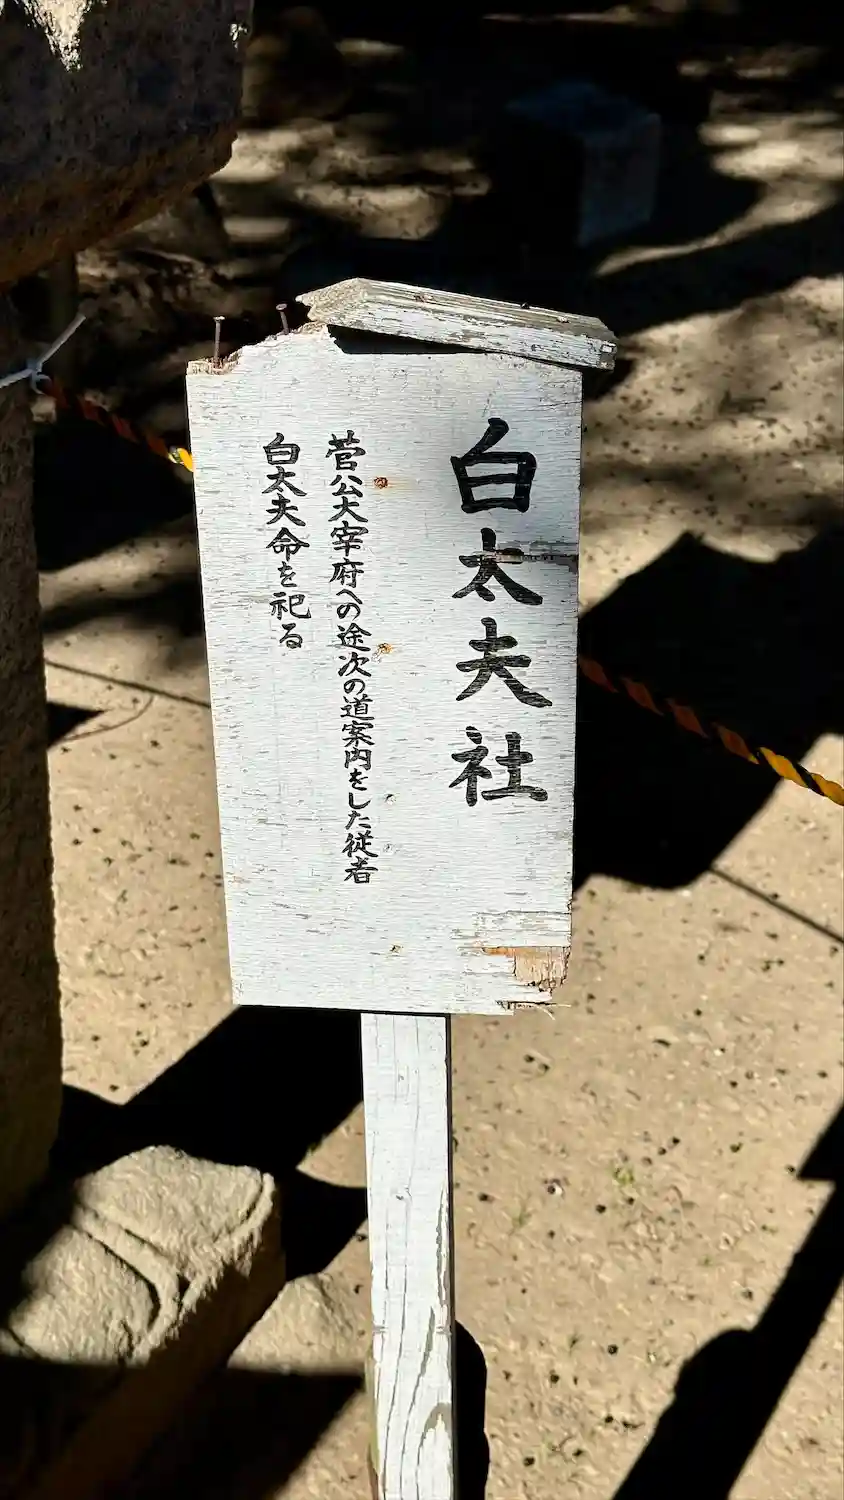 白太夫社
菅公大宰府への途次の道案内をした従者
白太夫命を祀る